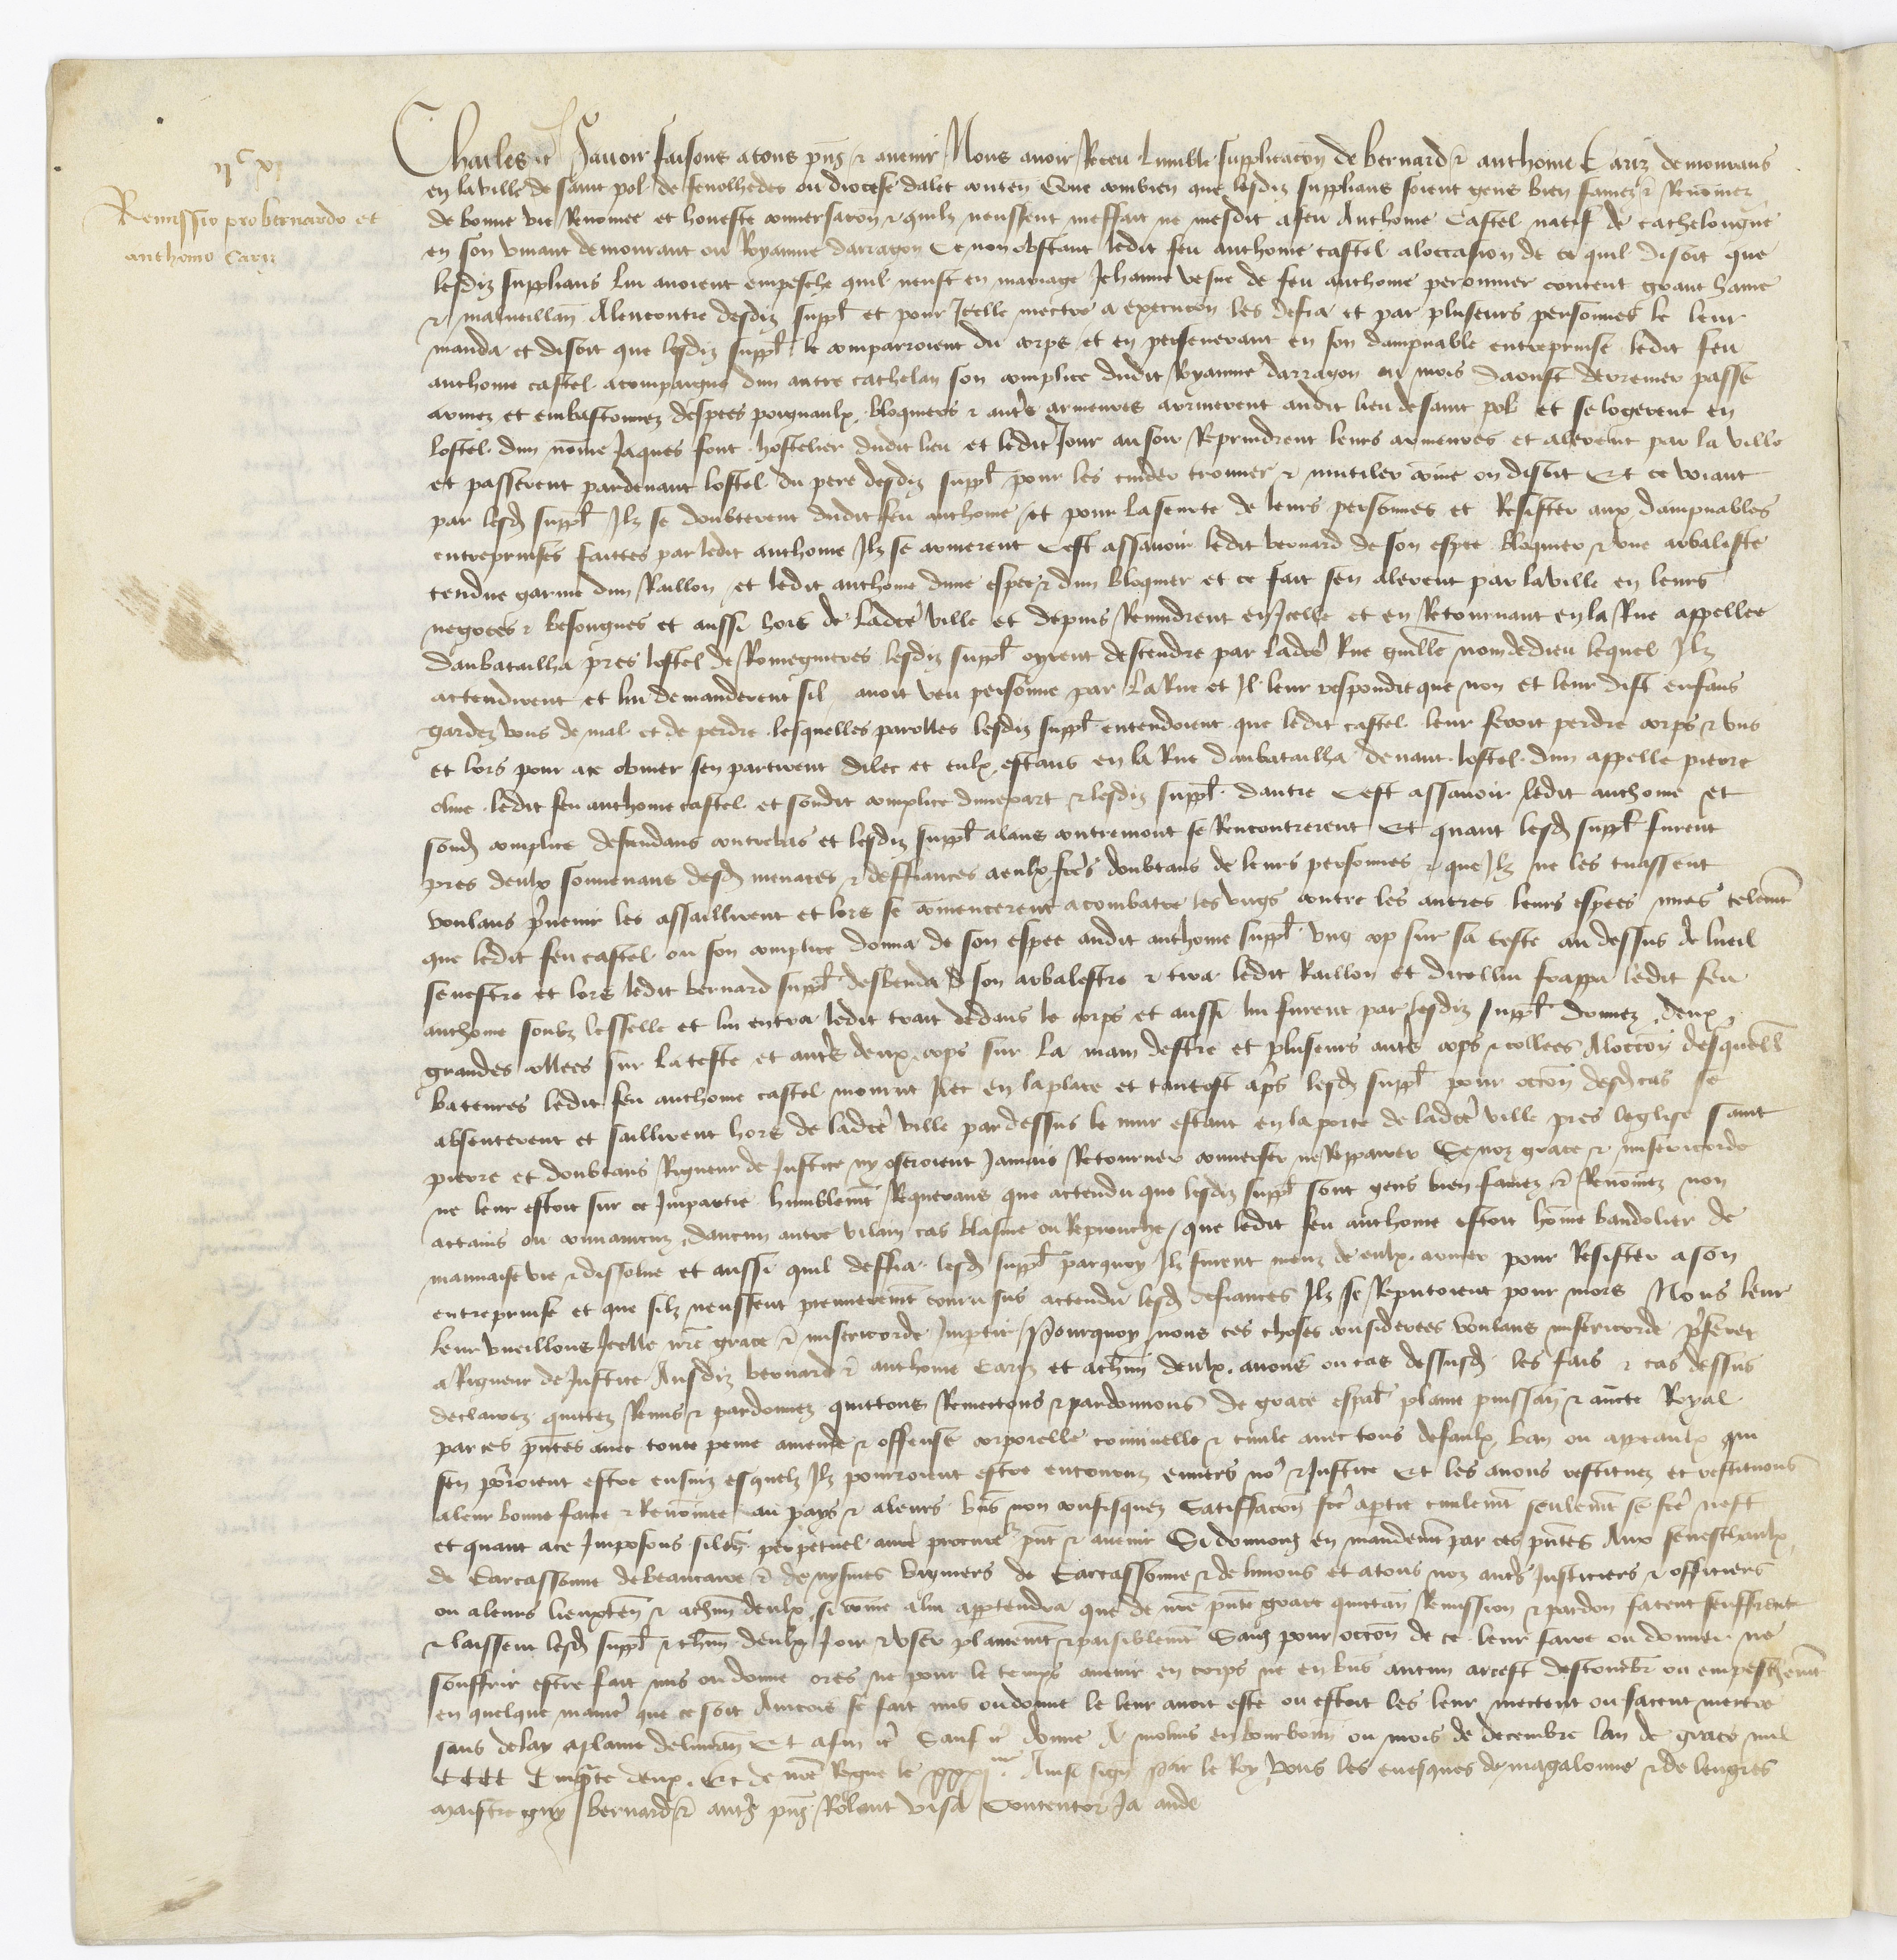 IIc XI
Remissio pro bernardo et
anthonio Cariz
Charles etc Savoir faisons a tous pns et avenir Nous avoir Receu lumble supplicacon de bernard et anthoine Cariz demourans
en la ville de saint pol de fenolhedes ou diocese dalet conten Que combien que lesdiz supplians soient gens bien famez et Renomez
de bonne vie Renomee et honeste conversacon et quilz neussent meffait ne mesdit a feu Anthoine Castel natif de cathelongne
en son vivant demourant ou Royaume darragon Ce non obstant ledit feu anthoine castel a loccasion de ce quil disoit que
lesdiz supplians lui avoient empesche quil neust en mariage Jehanne vesve de feu anthoine peronnier conceut grant hayne
et malveillan Alencontre desdiz suppl et pour Icelle mectre a execucon les defia et par pluseurs personnes le leur
manda et disoit que lesdiz suppl le comparroient du corps et en perseverant en son dampnable entreprinse ledit feu
anthoine castel acompaigne dun autre cathelan son complice dudit Royaume darragon ou mois daoust derrenier passe
armez et embastonnez despees poignaulx bloquiers et autrs armeures arriverent audit lieu de saint pol et se logerent en
lostel dun nome Jaques font hostelier dudit lieu et ledit Jour au soir Reprindrent leurs armeures et alerent par la ville
et passerent pardevant lostel du pere desdiz suppl pour les cuider trouver et mutiler come on disoit Et ce voiant
par lesd suppl Ilz se doubterent dudit feu anthoine et pour la seurte de leurs personnes et Resister aux dampnables
entreprinses faittes par ledit anthoine Ilz se armerent Cest assavoir ledit bernard de son espee bloquier et une arbaleste
tendue garnie dun Raillon et ledit anthoine dune espee et dun bloquier et ce fait sen alerent par la ville en leurs
negoces et besongnes et aussi hors de ladce ville et depuis Revindrent en Icelle et en Retournant en la Rue appellee
daubatailha pres lostel de Romegueres lesdiz suppl oyrent descendre par ladce Rue guille nomdedieu lequel Ilz
actendirent et lui demanderent sil avoit veu personne par la Rue et Il leur respondit que non et leur dist enfans
gardez vous de mal et de perdre lesquelles parolles lesdiz suppl entendoient que ledit castel leur feroit perdre corps et vies
et lors pour a ce obvier sen partirent dilec et eulx estans en la Rue daubatailha devant lostel dun appelle pierre
olive ledit feu anthoine castel et sondit complice dune part et lesdiz suppl dautre Cest assavoir ledit anthoine et
sond complice descendans contrebas et lesdiz suppl alans contremont se Rencontrerent Et quant lesd suppl furent
pres deulx souvenans desd menaces et deffiances a eulx fces doubtans de leurs personnes et que Ilz ne les tuassent
voulans prvenir les assaillirent et lors se comencerent a combatre les ungs contre les autres leurs espees nues telemt
que ledit feu castel ou son complice donna de son espee audit anthoine suppl ung cop sur sa teste au dessus de lueil
senestre et lors ledit bernard suppl desbenda son arbalestre et tira ledit Raillon et dicellui frappa ledit feu
anthoine soubz lesselle et lui entra ledit trait dedans le corps et aussi lui furent par lesdiz suppl donnez deux
grandes collees sur la teste et autrs deux cops sur la main destre et pluseurs autrs cops et collees A loccon desquelles
bateures ledit feu anthoine castel mourut Ilec en la place et tantost aprs lesd suppl pour occon desd cas se
absenterent et saillirent hors de ladce ville par dessus le mur estant en la porte de ladce ville pres leglise saint
pierre et doubtans Rigueur de Justice ny oseroient Jamais Retourner converser ne Repparer Se noz grace et misericorde
ne leur estoit sur ce Impartie humblemt Requerans que actendu que lesdiz suppl sont gens bien famez et Renomez non
actains ou convaincuz daucun autre vilain cas blasme ou Reprouche que ledit feu anthoine estoit home bandolier de
mauvaise vie et dissolue et aussi quil deffia lesd suppl parquoy Ilz furent meuz de eulx armer pour Resister a son
entreprinse et que silz neussent premieremt couru sus actendu lesd defiances Ilz se Reputoient pour mors Nous leur
leur vueillons Icelle nre grace et misericorde Imptir Pourquoy nous ces choses considerees voulans misericorde prferer
a Rigueur de Justice Ausdiz bernard et anthoine Cariz et achun deulx avons ou cas dessusd les fais et cas dessus
declairez quittez Remis et pardonnez quittons Remectons et pardonnons de grace espal plaine puissan et aucte Royal
par ces pntes avec toute peine amende et offense corporelle criminelle et civile avec tous defaulx ban ou appeaulx qui
sen porroient estre ensuiz esquelz Ilz pourroient estre encouruz envers nous et Justice Et les avons restituez et restituons
a leur bonne fame et Renomee au pays et a leurs bns non confisquez Satiffacon fce a ptie civilemt seulemt se fce nest
et quant a ce Imposons silen perpetuel a nre procureur pnt et avenir Si donnons en mandemt par ces pntes Aux seneschaulx
de Carcassonne de beaucaire et de nysmes viguiers de Carcassonne et de limous et a tous noz autrs Justiciers et officiers
ou a leurs lieuxten et achun deulx si come a lui apptendra que de nre pnte grace quictan Remission et pardon facent seuffrent
et laissent lesd suppl et chun deulx Joir et user plainemt et paisiblemt Sans pour occon de ce leur faire ou donner ne
souffrir estre fait mis ou donne ores ne pour le temps avenir en corps ne en bns aucun arrest destourbr ou empeschemt
en quelque manie que ce soit Aincois se fait mis ou donne le leur avoit este ou estoit les leur mectent ou facent mectre
sans delay a plaine delivran Et afin etc Sauf etc donne A molins en bourbon ou mois de decembre lan de grace mil
CCCC Cinqte deux Et de nre Regne le xxxime Ainsi signe par le Roy Vous les evesques de magalonne et de lengres
maistre guy bernard et autrs pns Rolant Visa Contentor Ja aude